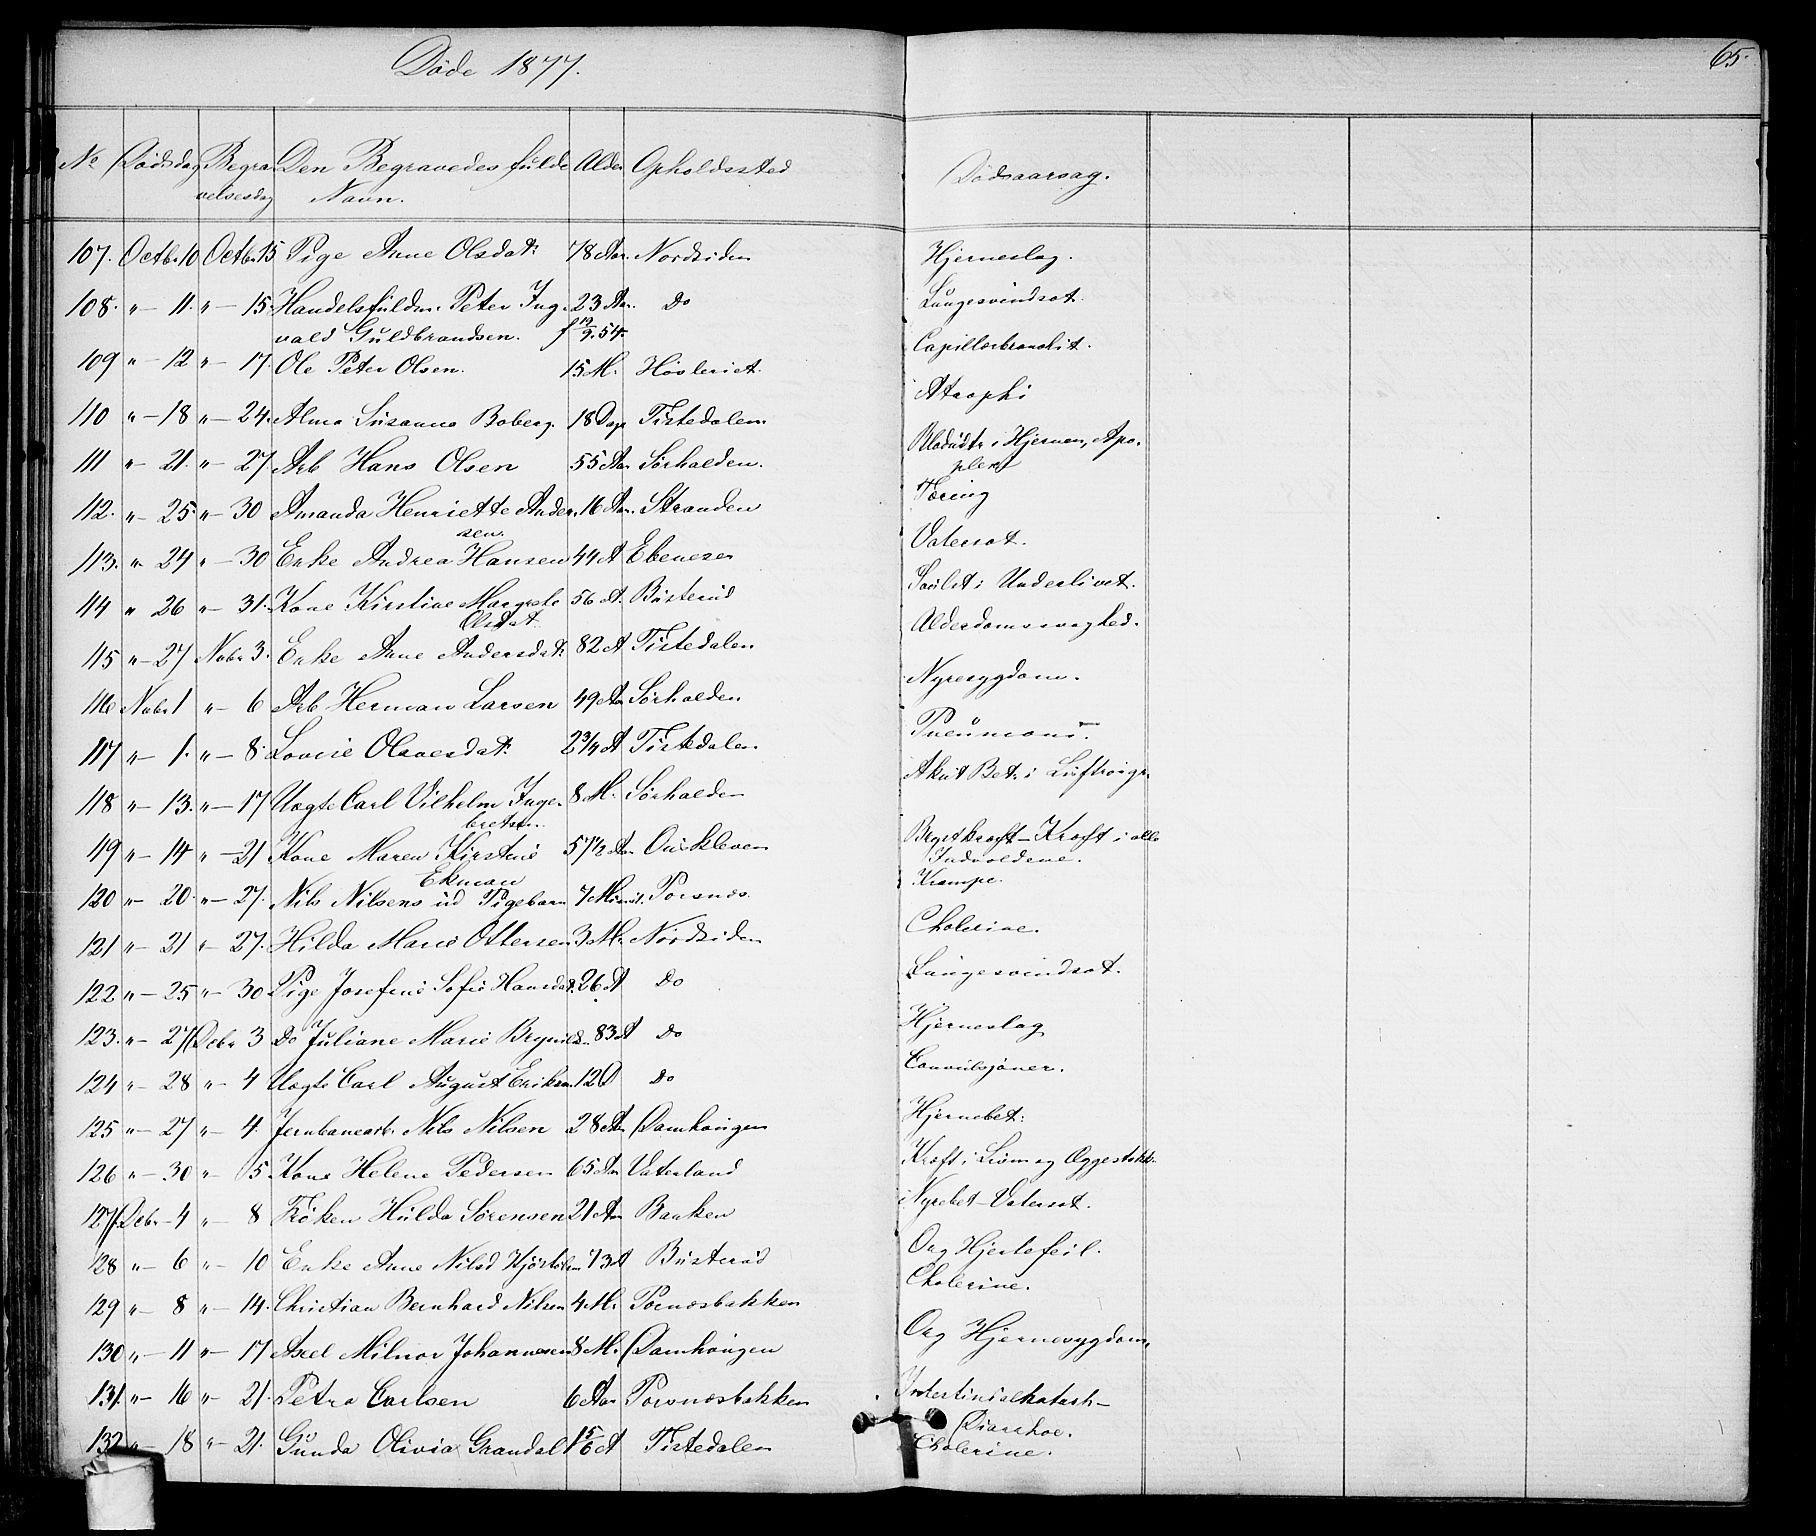 Døde 1877.
65.
No Dødsdag Begravelsesdag Den Begravedes fulde Navn. Alder Opholdssted Dødsaarsag.
107. Octbr 10 Octbr 15 Pige Anne Olsdat: 78 Aar. Nordsiden Hjerneslag.
108. " — 11. " — 15. Handelsfuldm. Peter Ing. 23 Aar. Do Lungesvindsot.
vald Guldbrandsen. f 19/9. 54.
109 " — 12 " — 17. Ole Peter Olsen. 15 M. Høvleriet. Capillærbronchit.
110 " — 18 " — 24. Alma Susanna Boberg. 18 Dage Tistedalen. Atrophi
111 " — 21. " — 27. Arb Hans Olsen 55 Aar Sørhalden. Blodudtr. i Hjernen, Apo-
plexi
112. " — 25. " — 30 Amanda Henriette Ander- 16 Aar. Stranden Tæring
sen.
113. " — 24 " — 30 Enke Andrea Hansen 44 A Ebenezer Vatersot.
114 " 26 " — 31. Kone Kirstine Margrete 56 A. Busterud Svulst i Underlivet.
Olsdat.
115 " — 27 Novbr 3. Enke Anne Andersdat: 82 A Tistedalen Alderdomssvaghed.
116 Novbr 1 " — 6 Arb Herman Larsen 49 Aar Sørhalden Nyresygdom.
117 " — 1. " — 8. Lovise Olavesdat: 2 3/4 A Tistedalen. Pneumoni.
118 " — 13. " — 17 Uægte Carl Vilhelm Inge- 8 M. Sørhalden Akut Bet. i Luftveiene
bretsen.
119 " — 14 " — 21 Kone Maren Kirstine 57 1/2 Aar Ourekleven Brystkræft — Kræft i alle
Ekman Indvoldene.
120 " — 20. " — 27. Nils Nilsens ud Pigebarn 7 Minut. Porsnæs. Krampe.
121 " — 21 " — 27. Hilda Marie Ottersen 3 M. Nordsiden Cholerine.
122 " — 25 " — 30 Pige Josefine Sofie Hansdat. 26 A Do Lungesvindsot.
123. " — 27 Decbr 3 Do Juliane Marie Brynilds. 83 A Do Hjerneslag
124 " — 28 " — 4 Uægte Carl August Eriksen 12 D Do Convulsjoner.
125 " — 27 " — 4. Jernbanearb. Nils Nilsen 28 Aar Damhaugen Hjernebet:
126 " — 30 " — 5 Kone Helene Pedersen 65 Aar Vaterland Kræft i Livm og Æggestokk.
127 Decbr — 4 " — 8 Frøken Hulda Sørensen 21 Aar Banken Nyrebet — Vatersot.
128 " — 6 " — 10 Enke Anne Nilsd 73 A Busterud Org Hjertefeil.
129 " — 8 " — 14. Christian Bernhard Nilsen 4 M. Porsnæsbakken Cholerine.
130 " — 11 " — 17 Axel Milnor Johannesen 8 M. Damhaugen Org Hjernesygdom,
131. " — 16 " — 21. Petra Carlsen 6 Aar Porsnæsbakken Intestinalkatarh —
Diarrhoe.
132 " — 18 " — 21. Gunda Olivia Grandal 1 5/6 A Tistedalen Cholerine.